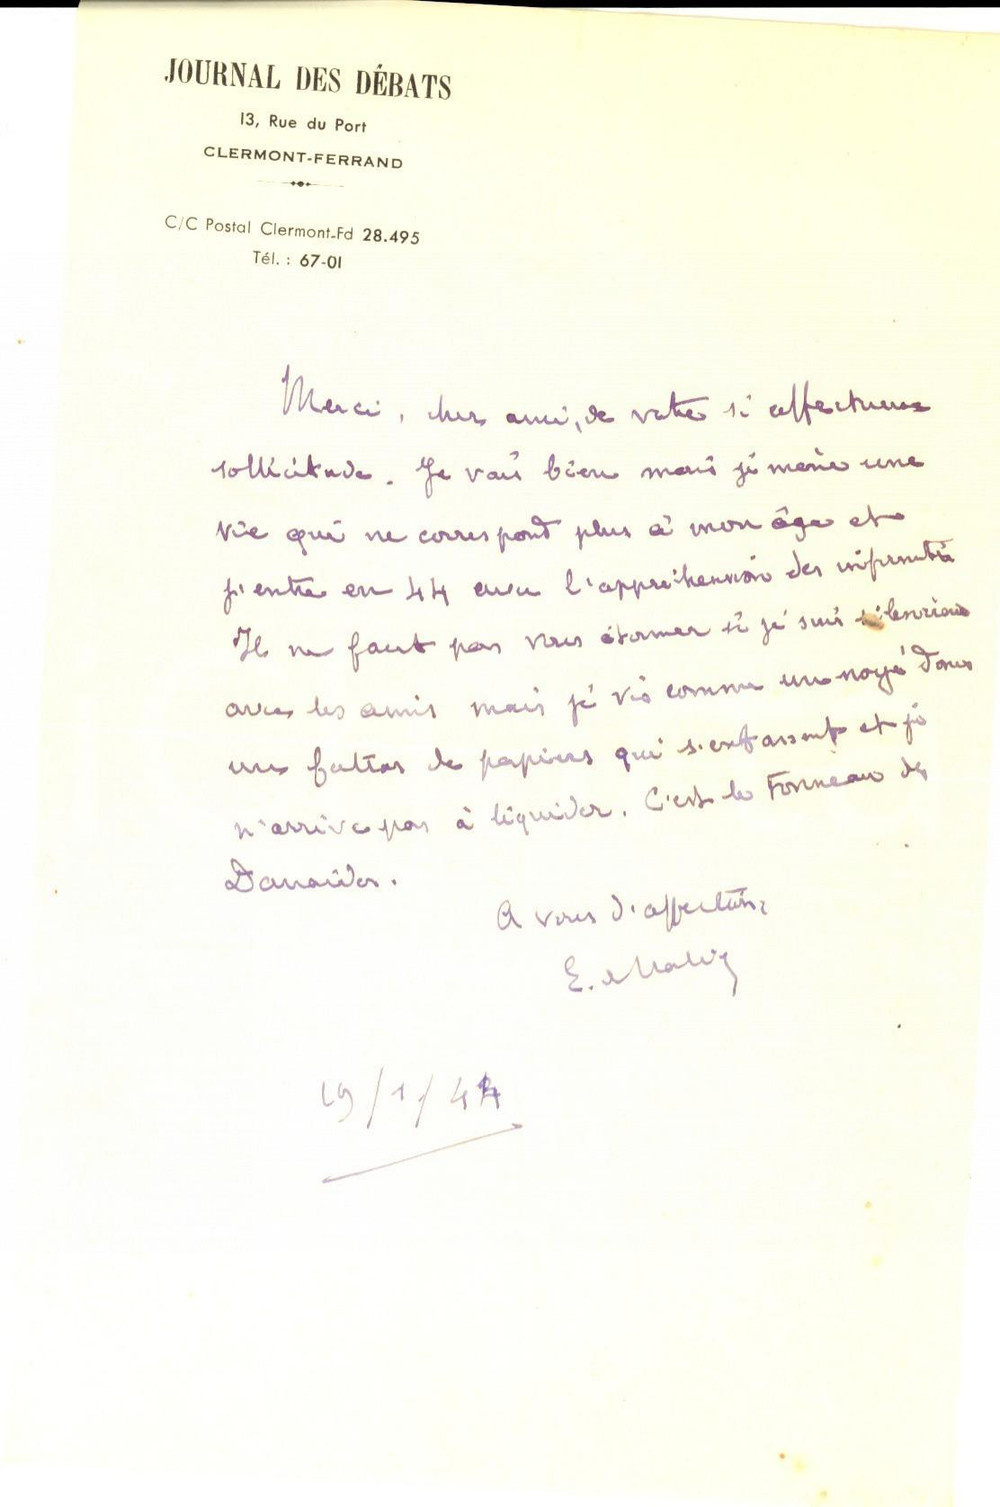 JOURNAL DES DÉBATS
13, Rue du Port
CLERMONT-FERRAND
C/C Postal Clermont-Fd 28.495
Tél. : 67-01
Merci, cher ami, de votre si affectueuse
sollicitude. Je vais bien mais je mène une
vie qui ne correspond plus à mon âge et
j'entre en 44 avec l'appréhension des infirmités
Il ne faut pas vous étonner si je suis silencieux
avec les amis mais je vis comme un noyé dans
un fatras de papiers qui s'entassent et je
n'arrive pas à liquider. C'est le Tonneau des
Danaïdes.
A vous d'affection
E. de
19/1/44